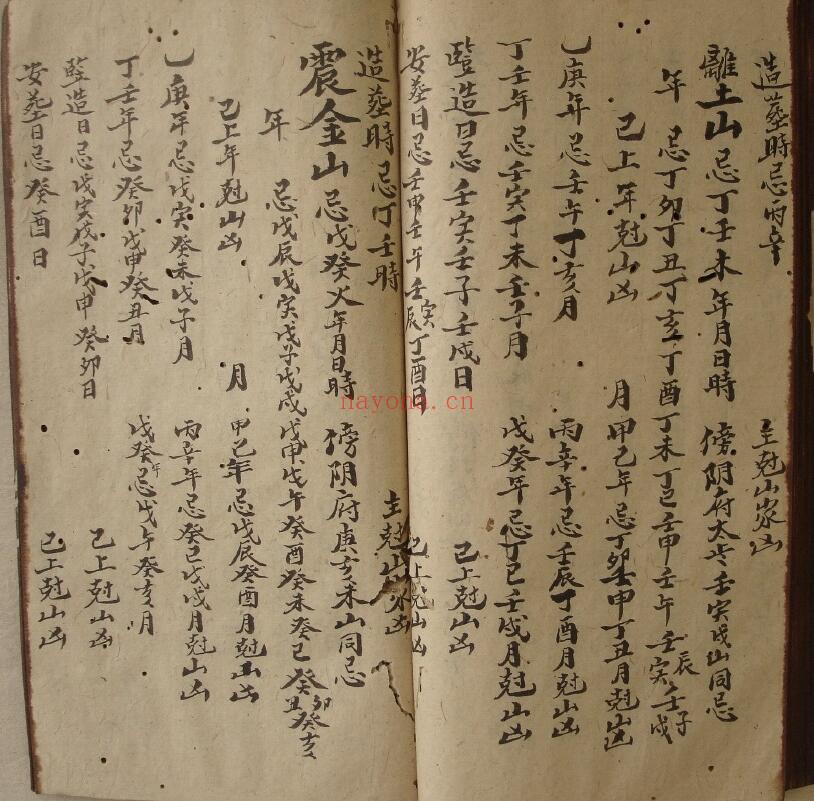 造葬時忌丙辛　主尅山家凶
離土山忌丁壬木年月日時　傍阴府太岁壬寅戌山同忌
年　忌丁卯丁丑丁亥丁酉丁未丁巳壬申壬午壬辰壬寅壬子壬戌
已上年尅山凶　月　甲己年忌丁卯壬申丁丑月尅山凶
乙庚年忌壬午丁亥月　丙辛年忌壬辰丁酉月尅山凶
丁壬年忌壬寅丁未壬子月　戊癸年忌丁巳壬戌月尅山凶
竪造日忌壬寅壬子壬戌日　已上尅山凶
安葬日忌壬申壬午壬寅壬辰丁酉日　已上尅山凶
造葬時忌丁壬時　主尅山家凶
震金山忌戊癸火年月日時　傍阴府庚亥未山同忌
年　忌戊辰戊寅戊子戊戌戊申戊午癸酉癸未癸巳癸卯癸丑癸亥
已上年尅山凶　月　甲己年忌戊辰癸酉月尅山凶
乙庚年忌戊寅癸未戊子月　丙辛年忌癸巳戊戌月尅山凶
丁壬年忌癸卯戊申癸丑月　戊癸年忌戊午癸亥月
竪造日忌戊寅戊子戊申癸卯日　已上尅山凶
安葬日忌癸酉日　已上尅山凶
nayona.cn